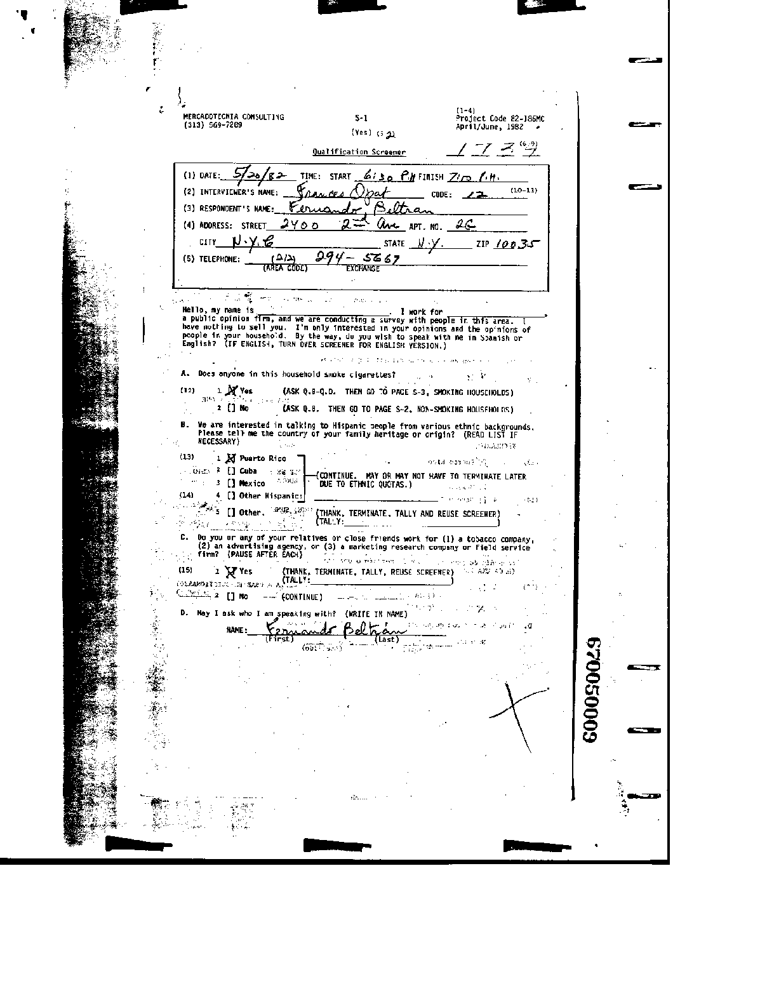 MERCADOTECNIA CONSULTING
(313) 569-7289
S-1
(Yes)
(1-4)
Project Code 82-186MC
April/June, 1982
Qualification Screener
(6-9)
(1) DATE: 5/20/82 TIME: START 6:30 P.M FINISH 7:10 P.M.
(2) INTERVIEWER'S NAME: Frances Opat CODE: 12 (10-11)
(3) RESPONDENT'S NAME: Fernando Beltran
(4) ADDRESS: STREET 2400 2nd Ave APT. NO. 2G
CITY N.Y.C STATE N.Y. ZIP 10035
(5) TELEPHONE: (212) 294-5667
(AREA CODE) EXCHANGE
Hello, my name is ____ . I work for ____
a public opinion firm, and we are conducting a survey with people in this area. I
have nothing to sell you. I'm only interested in your opinions and the opinions of
people in your household. By the way, do you wish to speak with me in Spanish or
English? (IF ENGLISH, TURN OVER SCREENER FOR ENGLISH VERSION.)
A. Does anyone in this household smoke cigarettes?
(12) 1 [X] Yes (ASK Q.B-Q.D. THEN GO TO PAGE S-3, SMOKING HOUSEHOLDS)
2 [] No (ASK Q.B. THEN GO TO PAGE S-2, NON-SMOKING HOUSEHOLDS)
B. We are interested in talking to Hispanic people from various ethnic backgrounds.
Please tell me the country of your family heritage or origin? (READ LIST IF
NECESSARY)
(13) 1 [X] Puerto Rico
2 [] Cuba
3 [] Mexico
(CONTINUE. MAY OR MAY NOT HAVE TO TERMINATE LATER
DUE TO ETHNIC QUOTAS.)
(14) 4 [] Other Hispanic:
5 [] Other. (THANK, TERMINATE, TALLY AND REUSE SCREENER)
(TALLY: ____)
C. Do you or any of your relatives or close friends work for (1) a tobacco company,
(2) an advertising agency, or (3) a marketing research company or field service
firm? (PAUSE AFTER EACH)
(15) 1 [X] Yes (THANK, TERMINATE, TALLY, REUSE SCREENER)
(TALLY: ____)
2 [] No (CONTINUE)
D. May I ask who I am speaking with? (WRITE IN NAME)
NAME: Fernando Beltrán
(First) (Last)
670050009